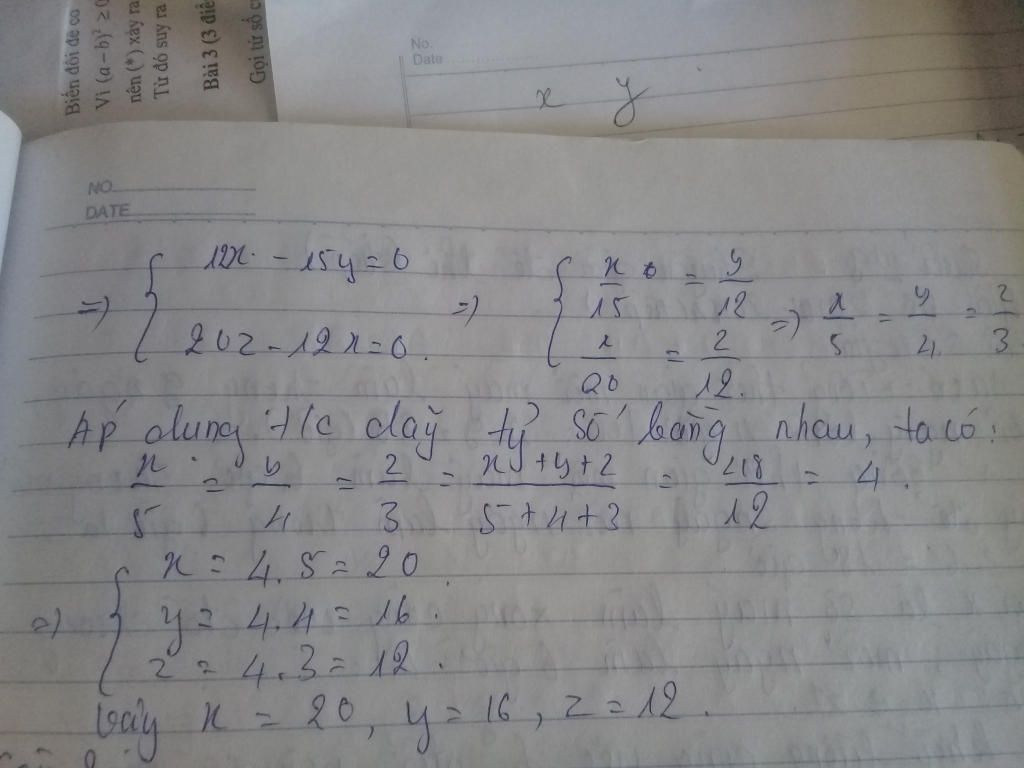 Biến đổi để có
Vì (a − b)² ≥ 0
nên (*) xảy ra
Từ đó suy ra
Bài 3 (3 điể
Gọi từ số c
No.
Date
x y
NO.
DATE
=> { 12x - 15y = 0 => { x/15 = y/12 => x/5 = y/4 = z/3
20z - 12x = 0. x/20 = z/12.
Áp dụng t/c dãy tỷ số bằng nhau, ta có:
x/5 = y/4 = z/3 = x+y+z/5+4+3 = 48/12 = 4.
=> { x = 4.5 = 20
y = 4.4 = 16.
z = 4.3 = 12.
Vậy x = 20, y = 16, z = 12.